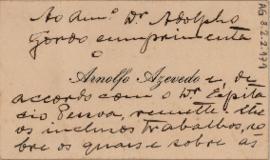 Ao Am.º Dr. Adolpho
Gordo cumprimenta
o
Arnolfo Azevedo e, de
accordo com o Dr. Epita
cio Pessoa, remette-lhe
os inclusos trabalhos, so
bre os quaes e sobre as
AG 8.2.2.179